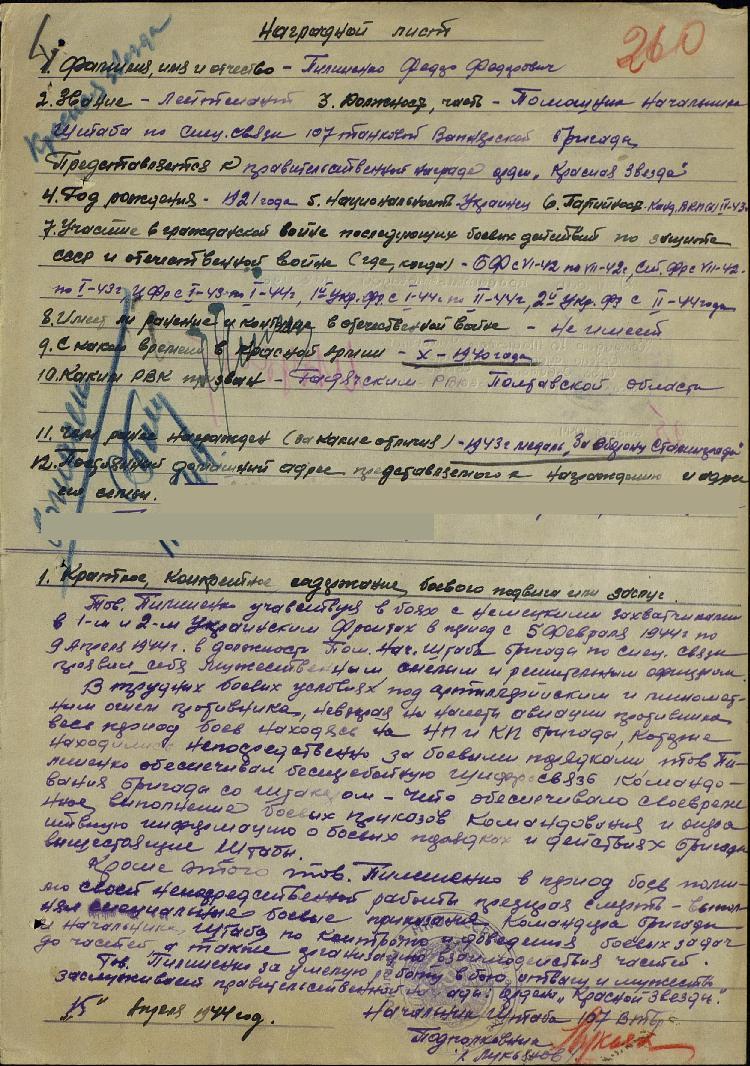 Наградной лист
260
Красная звезда
1. Фамилия, имя и отчество - Пилипенко Федор Федорович
2. Звание - Лейтенант 3. Должность, часть - Помощник Начальника
Штаба по спец. связи 107 танковой бригады
Представляется к правительственной награде орден „Красная Звезда"
4. Год рождения - 1921 года 5. Национальность Украинец 6. Партийность
7. Участие в гражданской войне последующих боевых действий по защите
СССР и отечественной войне (где, когда) - с VI-42 по VII-42г, VII-42-
по I-43г с I-43 по I-44г, 1й Укр. фр с I-44г по II-44г, 2й Укр. фр с II-44 года
8. Имеет ли ранение и контузии в отечественной войне - Не имеет
9. С какого времени в Красной Армии - X-1940 года
10. Каким РВК призван - Гадячским РВК Полтавской области
11. Чем ранее награжден (за какие отличия) - 1943г медаль „За оборону Сталинграда"
12. Постоянный домашний адрес представляемого к награждению и адрес
его семьи.
1. Краткое, конкретное содержание боевого подвига или заслуг.
Тов. Пилипенко участвуя в боях с немецкими захватчиками
в 1-м и 2-м Украинским фронтах в период с 5 Февраля 1944г по
9 Апреля 1944г. в должности Пом. Нач. Штаба бригады по спец. связи
проявил себя мужественным смелым и решительным офицером.
В трудных боевых условиях под артиллерийским и пулемет-
ным огнем противника, невзирая на налеты авиации противника
весь период боев находясь на НП и КП бригады, которые
находились непосредственно за боевыми порядками тов Пи-
липенко обеспечивал бесперебойную связь командо-
вания бригады со штабом - что обеспечивало своевремен
ное выполнение боевых приказов командования и
информацию о боевых порядках и действиях бригады
вышестоящие штабы.
Кроме этого тов. Пилипенко в период боев поми-
мо своей непосредственной работы презирая смерть - выпол-
нял специальные боевые приказания командира бригады
и начальника штаба по контролю и доведения боевых задач
до частей а также организации взаимодействия частей.
Тов. Пилипенко за умелую работу в бою отвагу и мужество
заслуживает правительственной награды орден „Красной Звезды".
„15" Апреля 1944 год.
Начальник штаба 107
Подполковник
(Лукьянов)